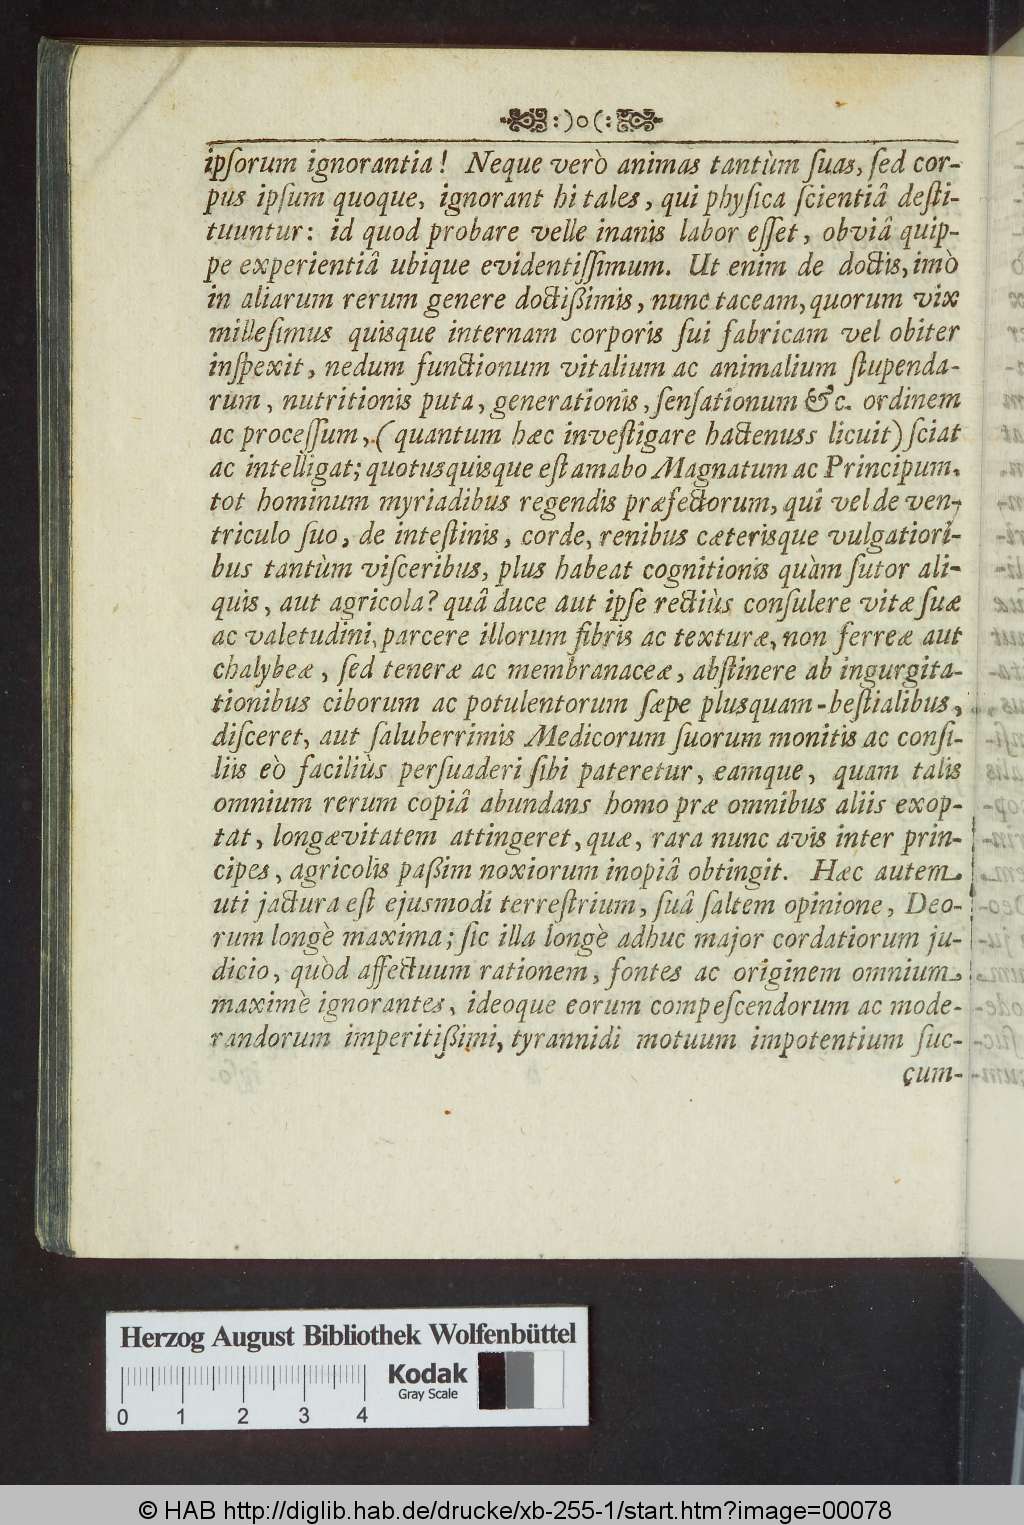 :)o(:
ipſorum ignorantia! Neque verò animas tantùm ſuas, ſed cor-
pus ipſum quoque, ignorant hi tales, qui phyſica ſcientiâ deſti-
tuuntur: id quod probare velle inanis labor eſſet, obviâ quip-
pe experientiâ ubique evidentiſſimum. Ut enim de doctis, imò
in aliarum rerum genere doctißimis, nunc taceam, quorum vix
milleſimus quisque internam corporis ſui fabricam vel obiter
inſpexit, nedum functionum vitalium ac animalium ſtupenda-
rum, nutritionis puta, generationis, ſenſationum &c. ordinem
ac proceſſum, (quantum hæc inveſtigare hactenuss licuit) ſciat
ac intelligat; quotusquisque eſt amabo Magnatum ac Principum,
tot hominum myriadibus regendis præfectorum, qui vel de ven-
triculo ſuo, de inteſtinis, corde, renibus cæterisque vulgatiori-
bus tantùm viſceribus, plus habeat cognitionis quàm ſutor ali-
quis, aut agricola? quâ duce aut ipſe rectiùs conſulere vitæ ſuæ
ac valetudini, parcere illorum fibris ac texturæ, non ferreæ aut
chalybeæ, ſed teneræ ac membranaceæ, abſtinere ab ingurgita-
tionibus ciborum ac potulentorum ſæpe plusquam-beſtialibus,
diſceret, aut ſaluberrimis Medicorum ſuorum monitis ac conſi-
liis eò faciliùs perſuaderi ſibi pateretur, eamque, quam talis
omnium rerum copiâ abundans homo præ omnibus aliis exop-
tat, longævitatem attingeret, quæ, rara nunc avis inter prin-
cipes, agricolis paßim noxiorum inopiâ obtingit. Hæc autem
uti jactura eſt ejusmodi terreſtrium, ſuâ ſaltem opinione, Deo-
rum longè maxima; ſic illa longè adhuc major cordatiorum ju-
dicio, quòd affectuum rationem, fontes ac originem omnium
maximè ignorantes, ideoque eorum compeſcendorum ac mode-
randorum imperitißimi, tyrannidi motuum impotentium ſuc-
cum-
Herzog August Bibliothek Wolfenbüttel
Kodak
Gray Scale
0 1 2 3 4
© HAB http://diglib.hab.de/drucke/xb-255-1/start.htm?image=00078